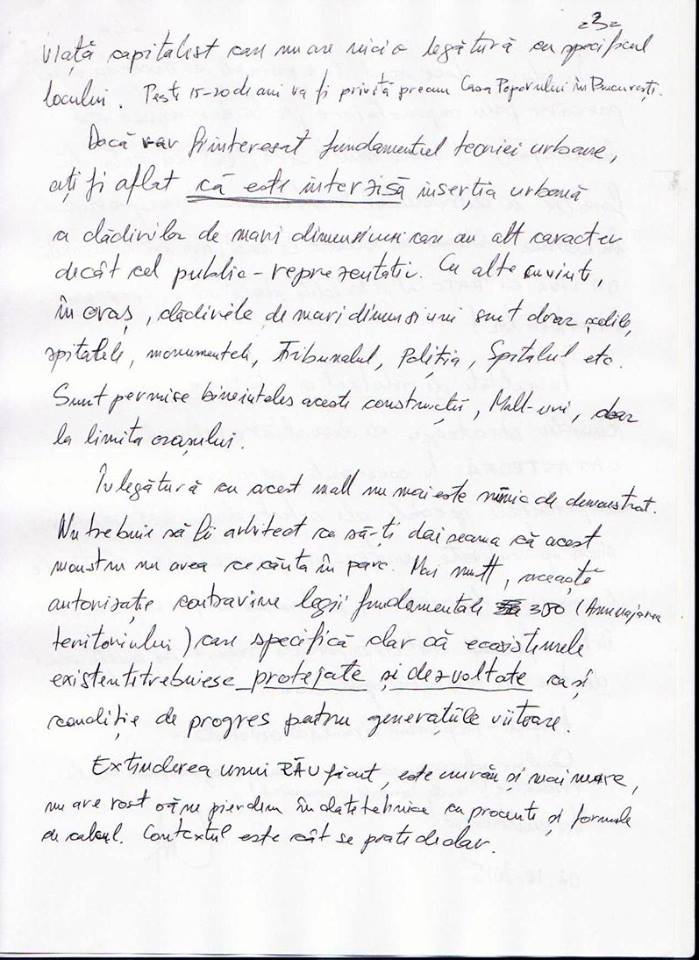 -3-
viată capitalist care nu are nicio legătură cu specificul
locului. Peste 15-20 de ani va fi privită precum Casa Poporului în București.
Dacă v-ar fi interesat fundamentul teoriei urbane,
ați fi aflat că este interzisă inserția urbană
a clădirilor de mari dimensiuni care au alt caracter
decât cel public-reprezentativ. Cu alte cuvinte,
în oraș, clădirile de mari dimensiuni sunt doar școlile,
spitalele, monumentele, Tribunalul, Poliția, Spitalul etc.
Sunt permise bineînteles aceste construcții, Mall-uri, doar
la limita orașului.
În legătură cu acest mall nu mai este nimic de demonstrat.
Nu trebuie să fii arhitect ca să-ti dai seama că acest
monstru nu avea ce căuta în parc. Mai mult, această
autorizație contravine legii fundamentale 350 (Amenajarea
teritoriului) care specifică clar că ecosistemele
existente trebuiesc protejate și dezvoltate ca și
condiție de progres pentru generațiile viitoare.
Extinderea unui RĂU făcut, este un rău și mai mare,
nu are rost să ne pierdem în date tehnice cu procente și formule
de calcul. Contextul este cât se poate de clar.